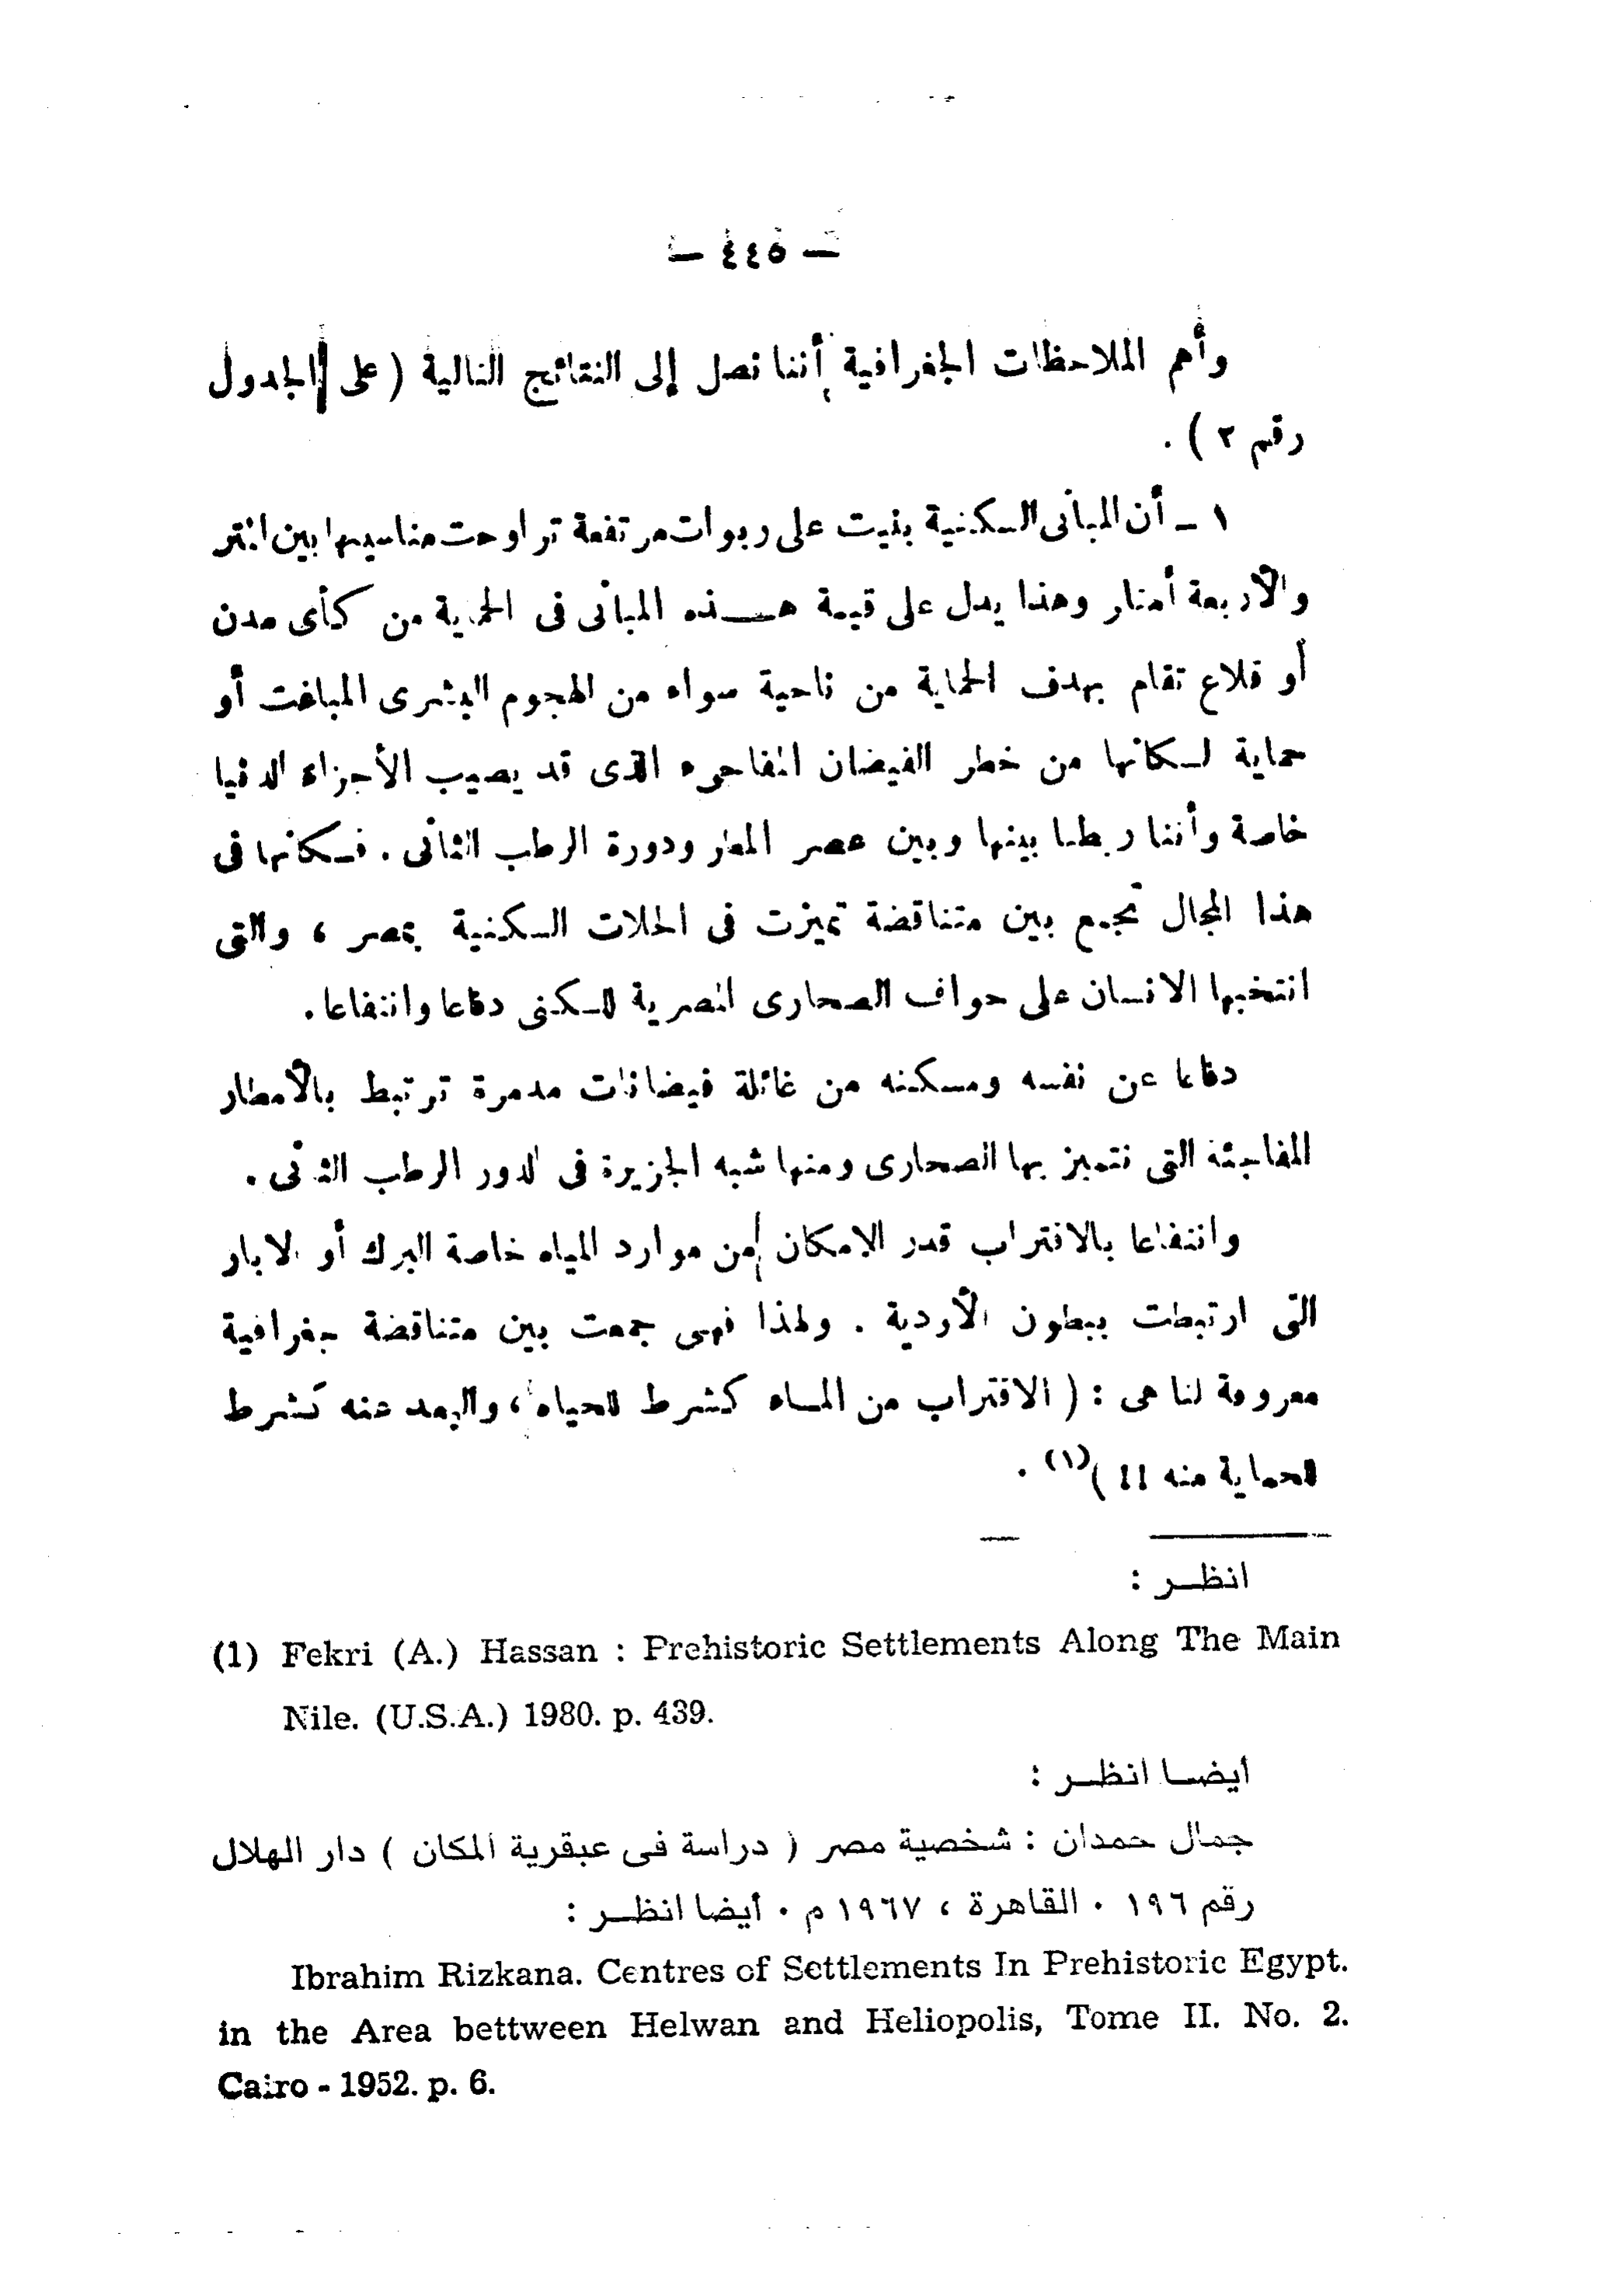 — ٤٤٥ —
وأهم الملاحظات الجغرافية أننا نصل إلى النتائج التالية ( على الجدول
رقم ٢ ) .
١ – أن المبانى السكنية بنيت على ربوات مرتفعة تراوحت مناسيبها بين المتر
والأربعة أمتار وهذا يدل على قيمة هـــذه المبانى فى الحماية من كأى مدن
أو قلاع تقام بهدف الحماية من ناحية سواء من الهجوم البشرى المباغت أو
حماية لسكانها من خطر الفيضان الذى قد يصيب الأجزاء الدنيا
خاصة وأننا ربطنا بينها وبين عصر المطر ودورة الرطب الثانى . فسكانها فى
هذا المجال تجمع بين متناقضة تميزت فى الحلات السكنية بمصر ، والتى
انتخبها الانسان على حواف الصحارى المصرية للسكنى دفاعا وانتفاعا .
دفاعا عن نفسه ومسكنه من غائلة فيضانات مدمرة ترتبط بالأمطار
المفاجئة التى تتميز بها الصحارى ومنها شبه الجزيرة فى الدور الرطب الثانى .
وانتفاعا بالاقتراب قدر الإمكان من موارد المياه خاصة البرك أو الابار
التى ارتبطت ببطون الأودية . ولهذا فهى جمعت بين متناقضة جغرافية
معروفة لنا هى : ( الاقتراب من المــاء كشرط للحياه ، والبعد عنه كشرط
للحماية منه !! )(١) .
انظــر :
(1) Fekri (A.) Hassan : Prehistoric Settlements Along The Main
Nile. (U.S.A.) 1980. p. 439.
أيضــا انظــر :
جمال حمدان : شخصية مصر ( دراسة فى عبقرية المكان ) دار الهلال
رقم ١٩٦ . القاهرة ، ١٩٦٧ م . أيضا انظــر :
Ibrahim Rizkana. Centres of Settlements In Prehistoric Egypt.
in the Area bettween Helwan and Heliopolis, Tome II. No. 2.
Cairo - 1952. p. 6.